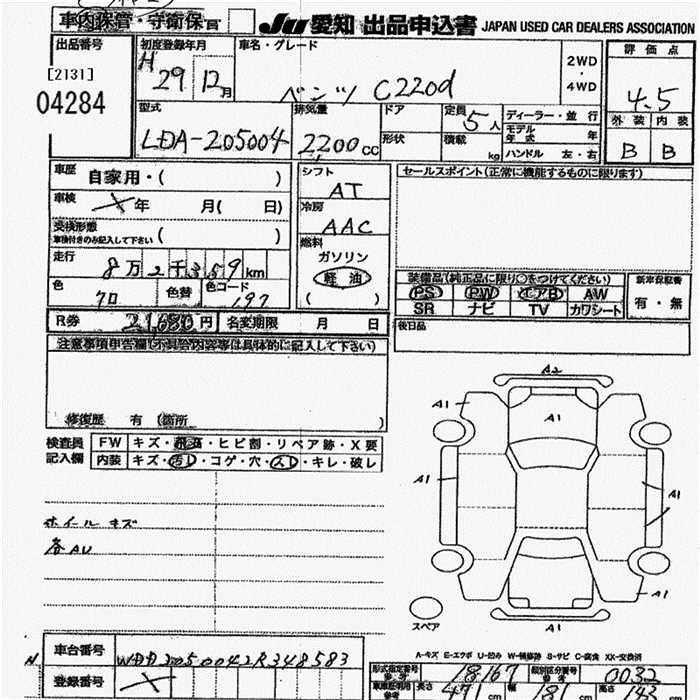 車内保管・守衛保管
JU 愛知 出品申込書 JAPAN USED CAR DEALERS ASSOCIATION
出品番号
[2131]
04284
初度登録年月
H 29 12月
車名・グレード
ベンツ C220d
2WD
・
4WD
評価点
4.5
外装 内装
B B
型式
LDA-205004
排気量
2200cc
ドア
形状
定員 5人
積載 kg
ディーラー・並行
モデル年式 年
ハンドル 左・右
車歴 自家用・( )
車検 年 月( 日)
受検形態
車検付きのみ記入して下さい ( )
走行 8万2千359km
色 クロ 色替 色コード 197
シフト
AT
冷房
AAC
燃料
ガソリン
軽油
( )
セールスポイント(正常に機能するものに限ります)
装備品(純正品に限り○をつけてください)
PS PW エアB AW
SR ナビ TV カワシート
新車保証書
有・無
R券 21,680円 名変期限 月 日
後日品
注意事項申告欄(不具合内容等は具体的に記入して下さい)
修復歴 有 (箇所 )
検査員
記入欄
FW キズ・飛石・ヒビ割・リペア跡・X要
内装 キズ・汚レ・コゲ・穴・スレ・キレ・破レ
ホイールキズ
各AU
A2
A1
A1
A1
A1
A1
A1
スペア
A-キズ E-エクボ U-凹み W-補修跡 S-サビ C-腐食 XX-交換済
車台番号 WDD2050042R348583
登録番号
型式指定番号 参考 18167
類別区分番号 参考 0032
車検証明有 参考 長さ 471cm 幅 181cm 高さ 145cm